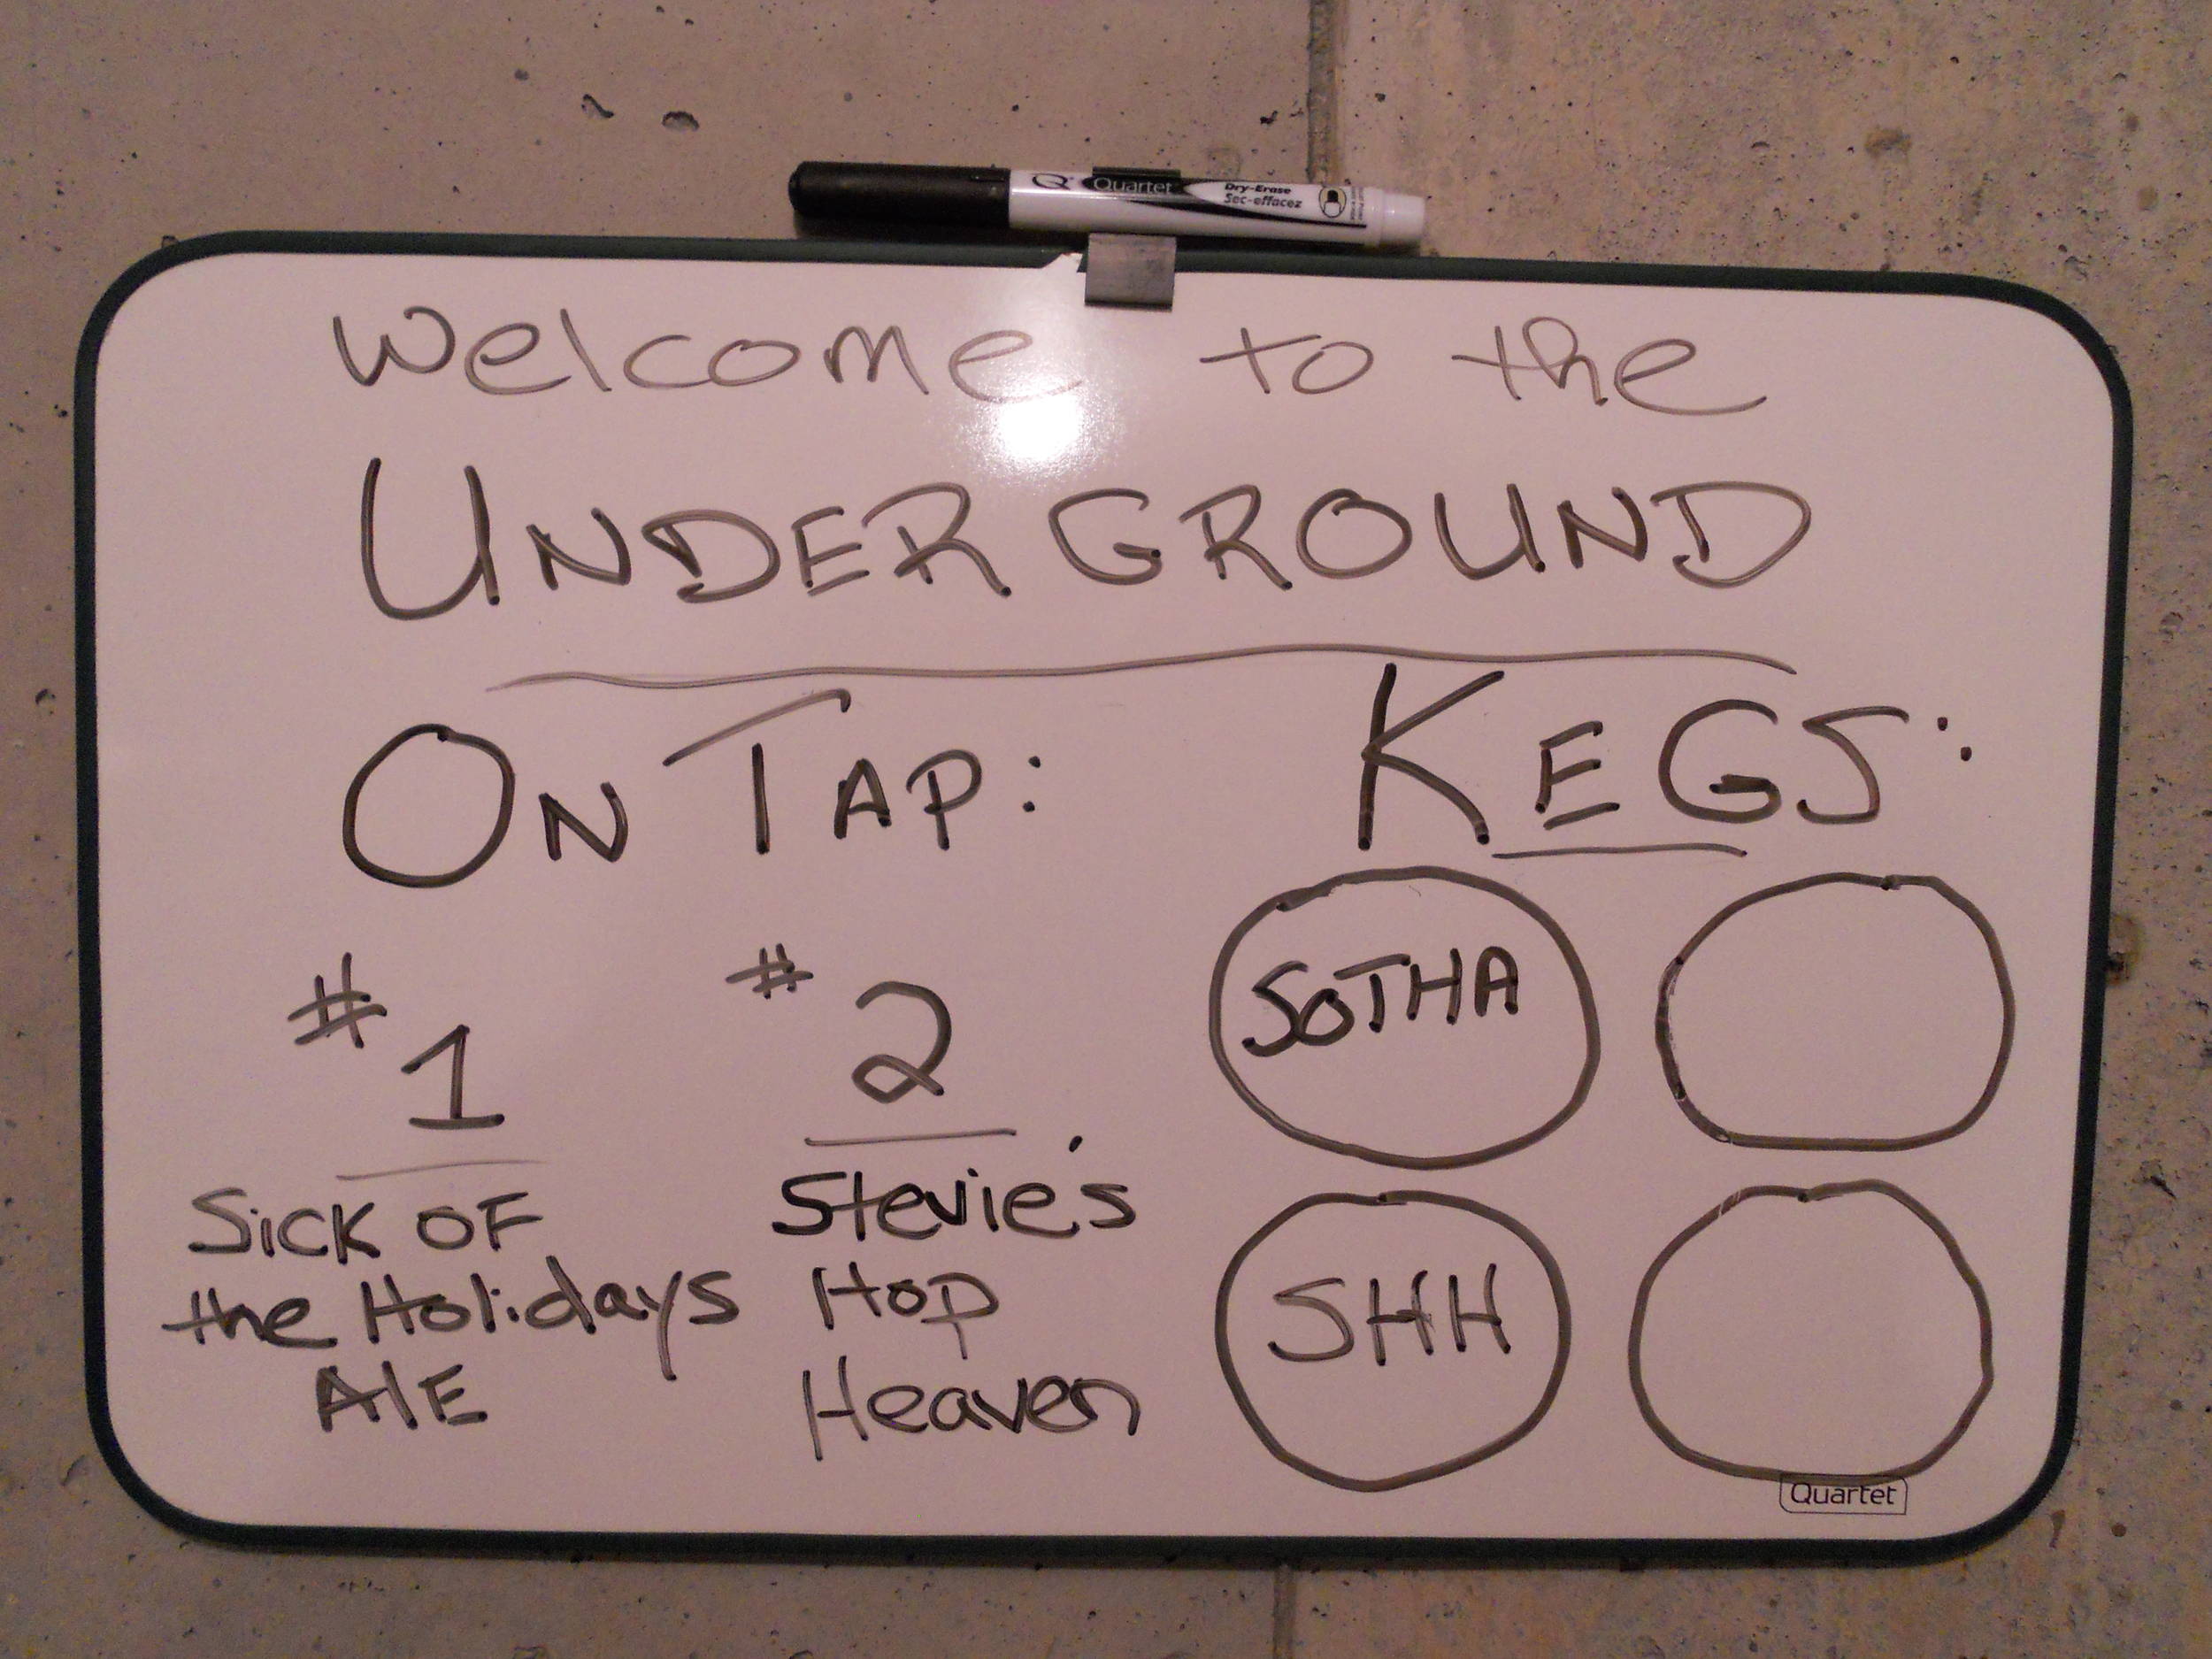 Quartet
Dry-Erase
Sec-effacez
Welcome to the
UNDERGROUND
ON TAP:
#1
SiCK OF
the Holidays
AlE
#2
Stevie's
Hop
Heaven
KEGS:
SOTHA
SHH
Quartet